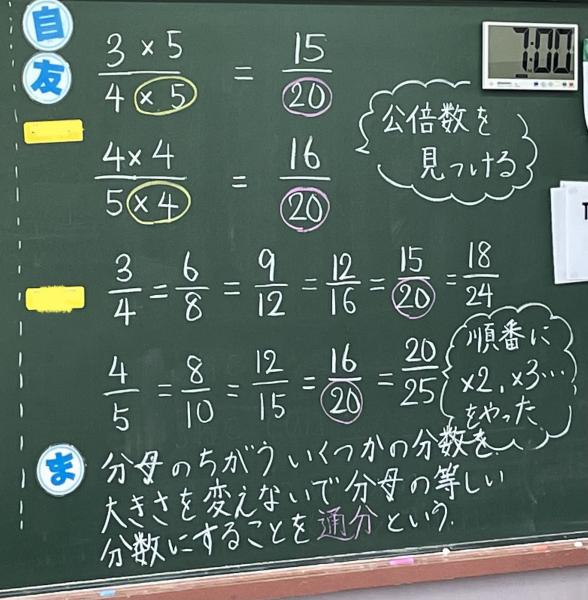 自
友
3 × 5 / 4 × 5 = 15 / 20
7:00
公倍数を
見つける
4 × 4 / 5 × 4 = 16 / 20
3/4 = 6/8 = 9/12 = 12/16 = 15/20 = 18/24
順番に
×2, ×3…
をやった
4/5 = 8/10 = 12/15 = 16/20 = 20/25
ま
分母のちがういくつかの分数を
大きさを変えないで分母の等しい
分数にすることを通分という.